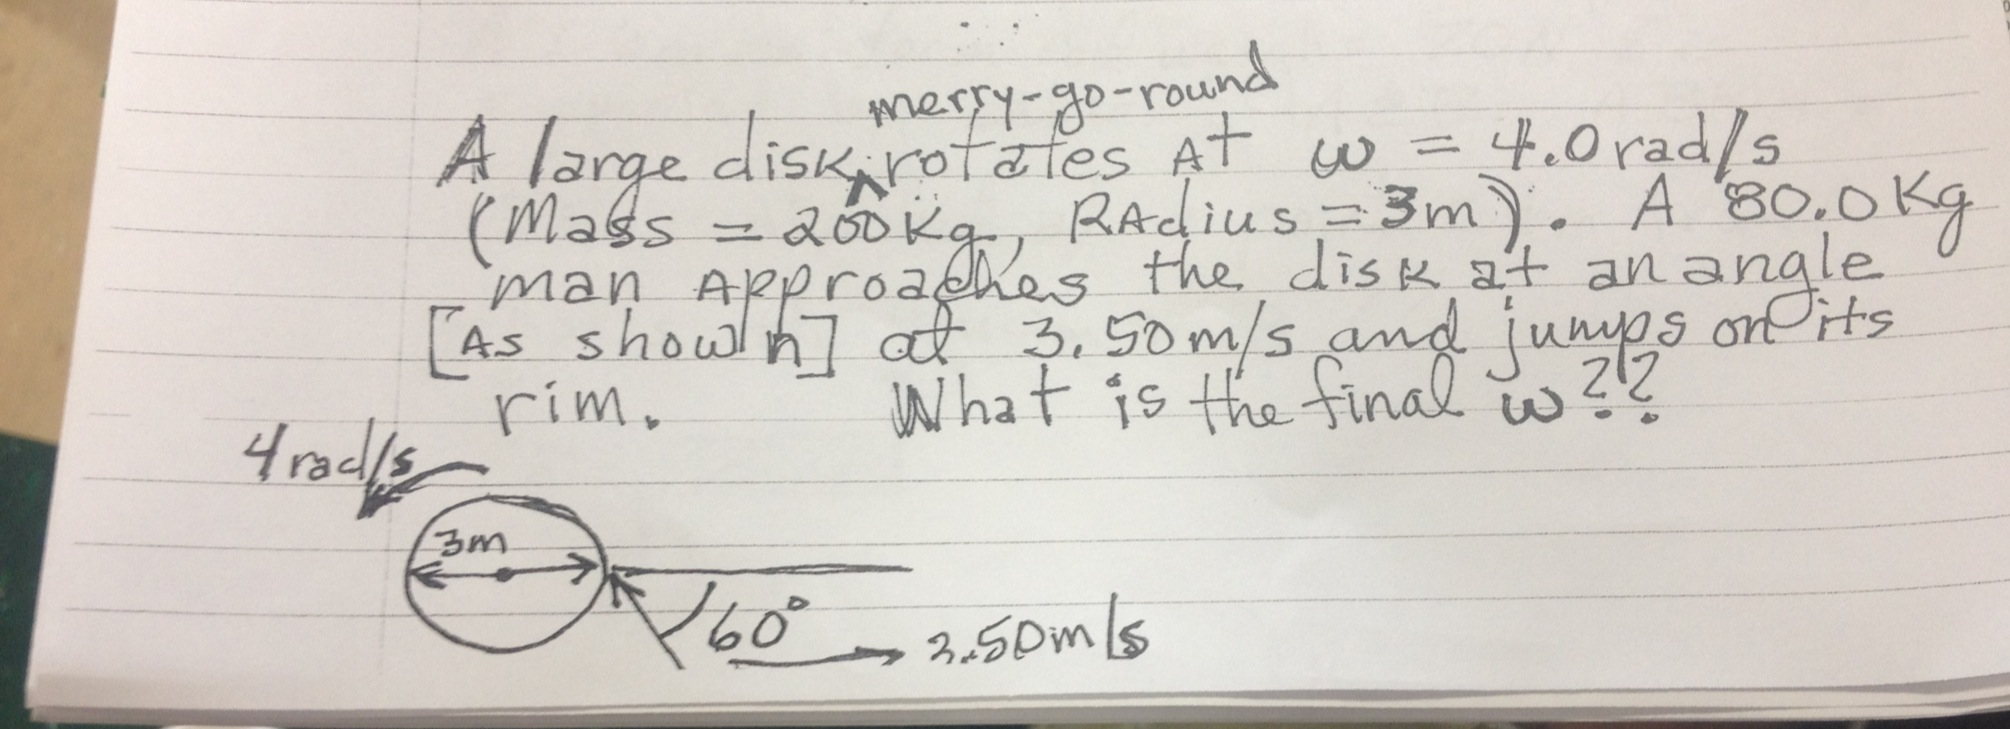 merry-go-round
A large disk rotates At ω = 4.0 rad/s
(Mass = 200 Kg, RAdius = 3m). A 80.0 Kg
man Approaches the disk at an angle
[As shown] at 3.50 m/s and jumps on its
rim. What is the final ω??
4 rad/s
3m
60°
3.50 m/s